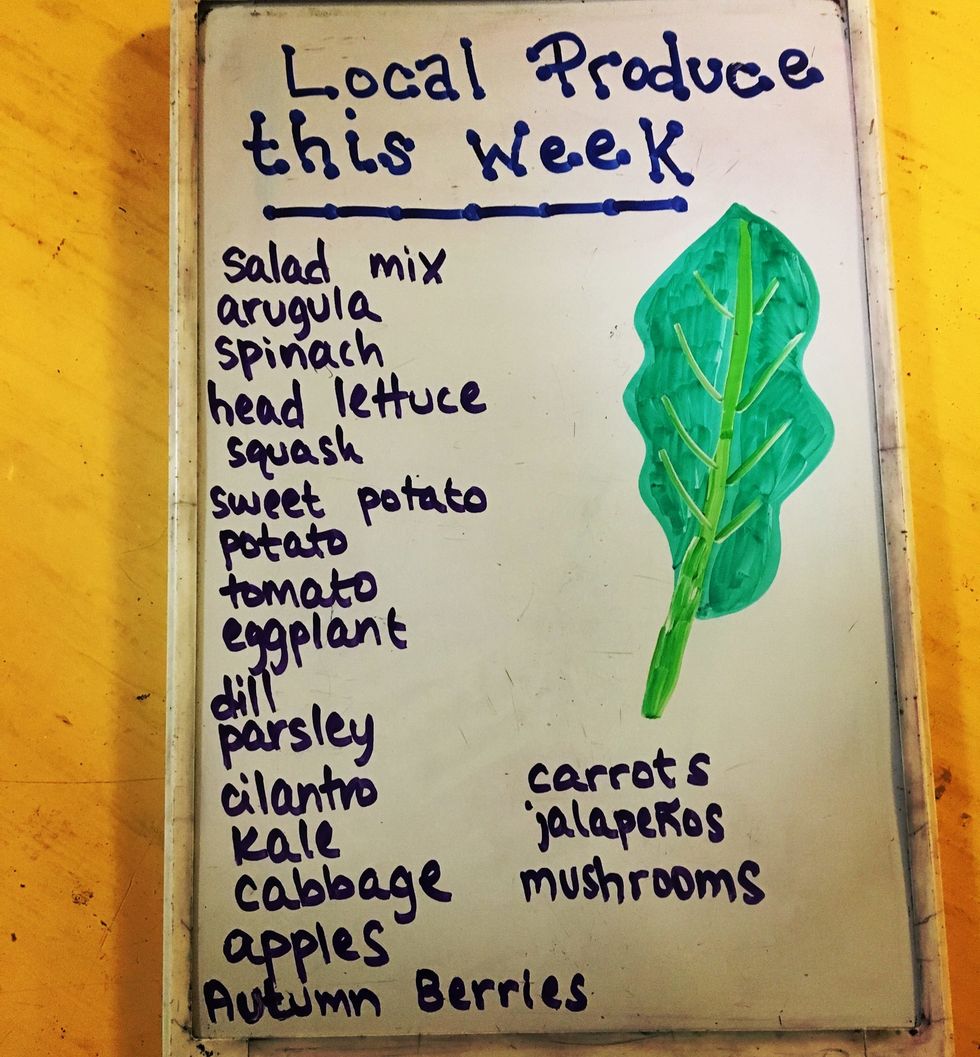 Local Produce
this week
salad mix
arugula
spinach
head lettuce
squash
sweet potato
potato
tomato
eggplant
dill
parsley
cilantro
kale
cabbage
apples
Autumn Berries
carrots
jalapeños
mushrooms